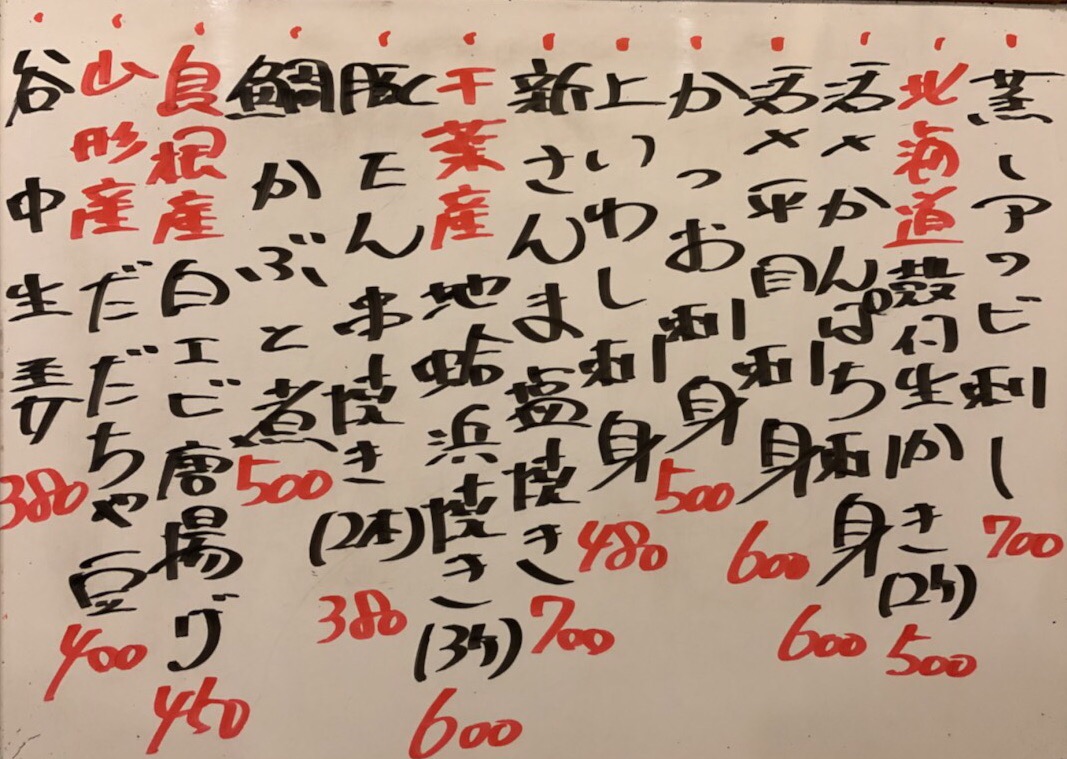 蒸しアワビ刺し 700
北海道殻付生かき(2ケ) 500
活〆かんぱち刺身 600
活〆平目刺身 600
かつお刺身 500
上いわし刺身 480
新さんま塩焼き 700
千葉産地蛤浜焼き(3ケ) 600
豚タン串焼き(2本) 380
鯛かぶと煮 500
島根産白エビ唐揚げ 450
山形産だだちゃ豆 400
谷中生姜 380